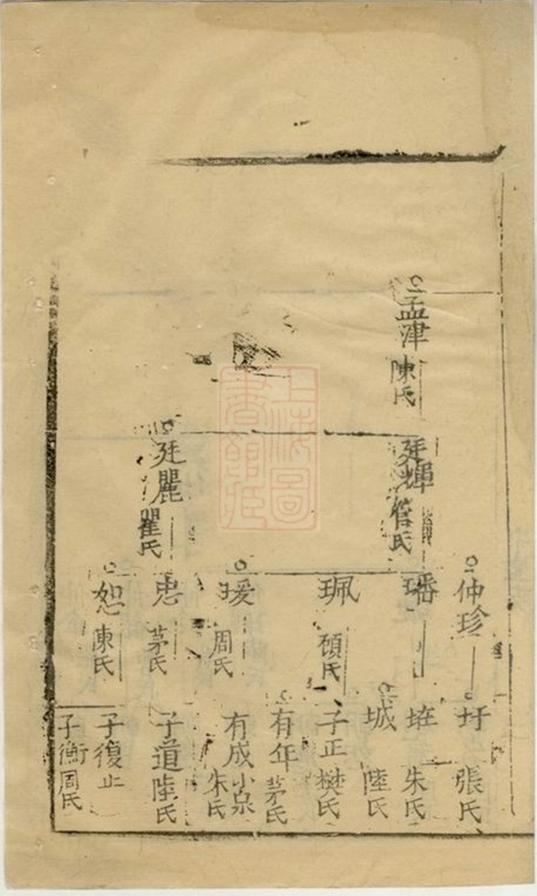 孟津 陳氏
廷輝 管氏
廷麗 瞿氏
仲珍
璠
珮 顧氏
瑗 周氏
忠 茅氏
恕 陳氏
圩 張氏
朱氏
城 陸氏
子正 樊氏
有年 茅氏
有成 小泉 朱氏
子道 陸氏
子復 止
子衡 周氏
上海圖書館藏